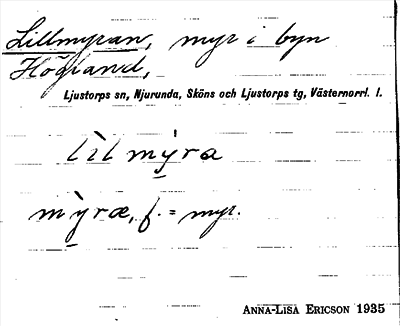 Lillmyran, myr i byn
Högland,
Ljustorps sn, Njurunda, Sköns och Ljustorps tg, Västernorrl. l.
lìlmy̠̒ra
mỳ̠ræ, f. = myr.
ANNA-LISA ERICSON 1935